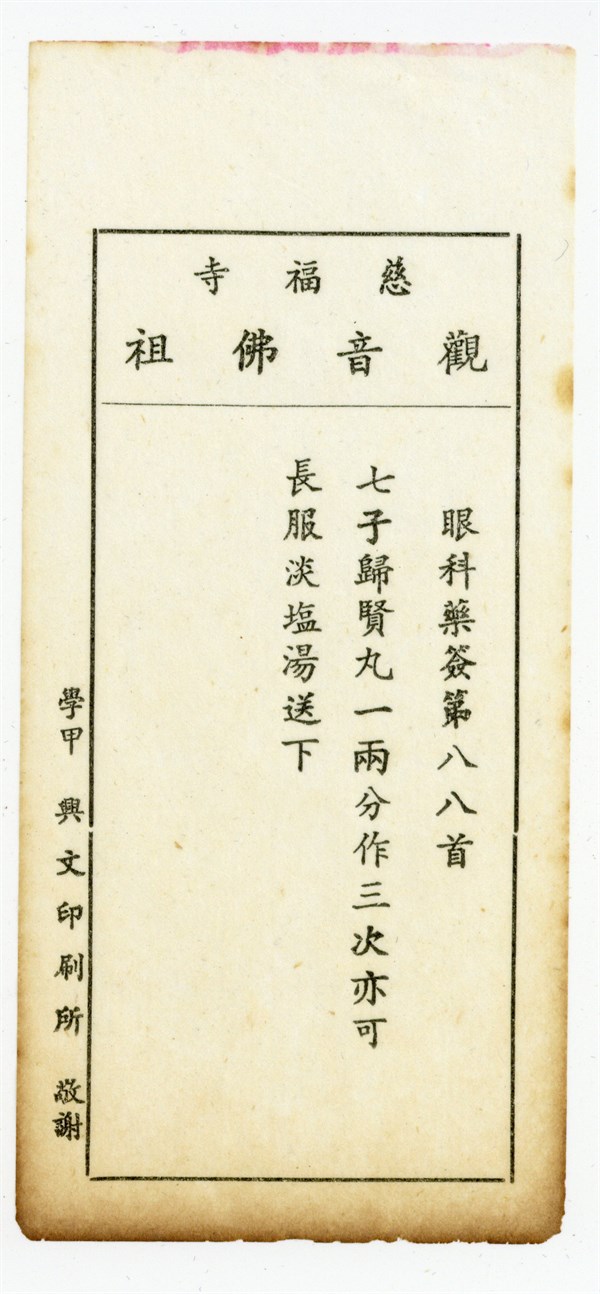 慈福寺
觀音佛祖
眼科藥簽第八八首
七子歸賢丸一兩分作三次亦可
長服淡塩湯送下
學甲 興文印刷所 敬謝